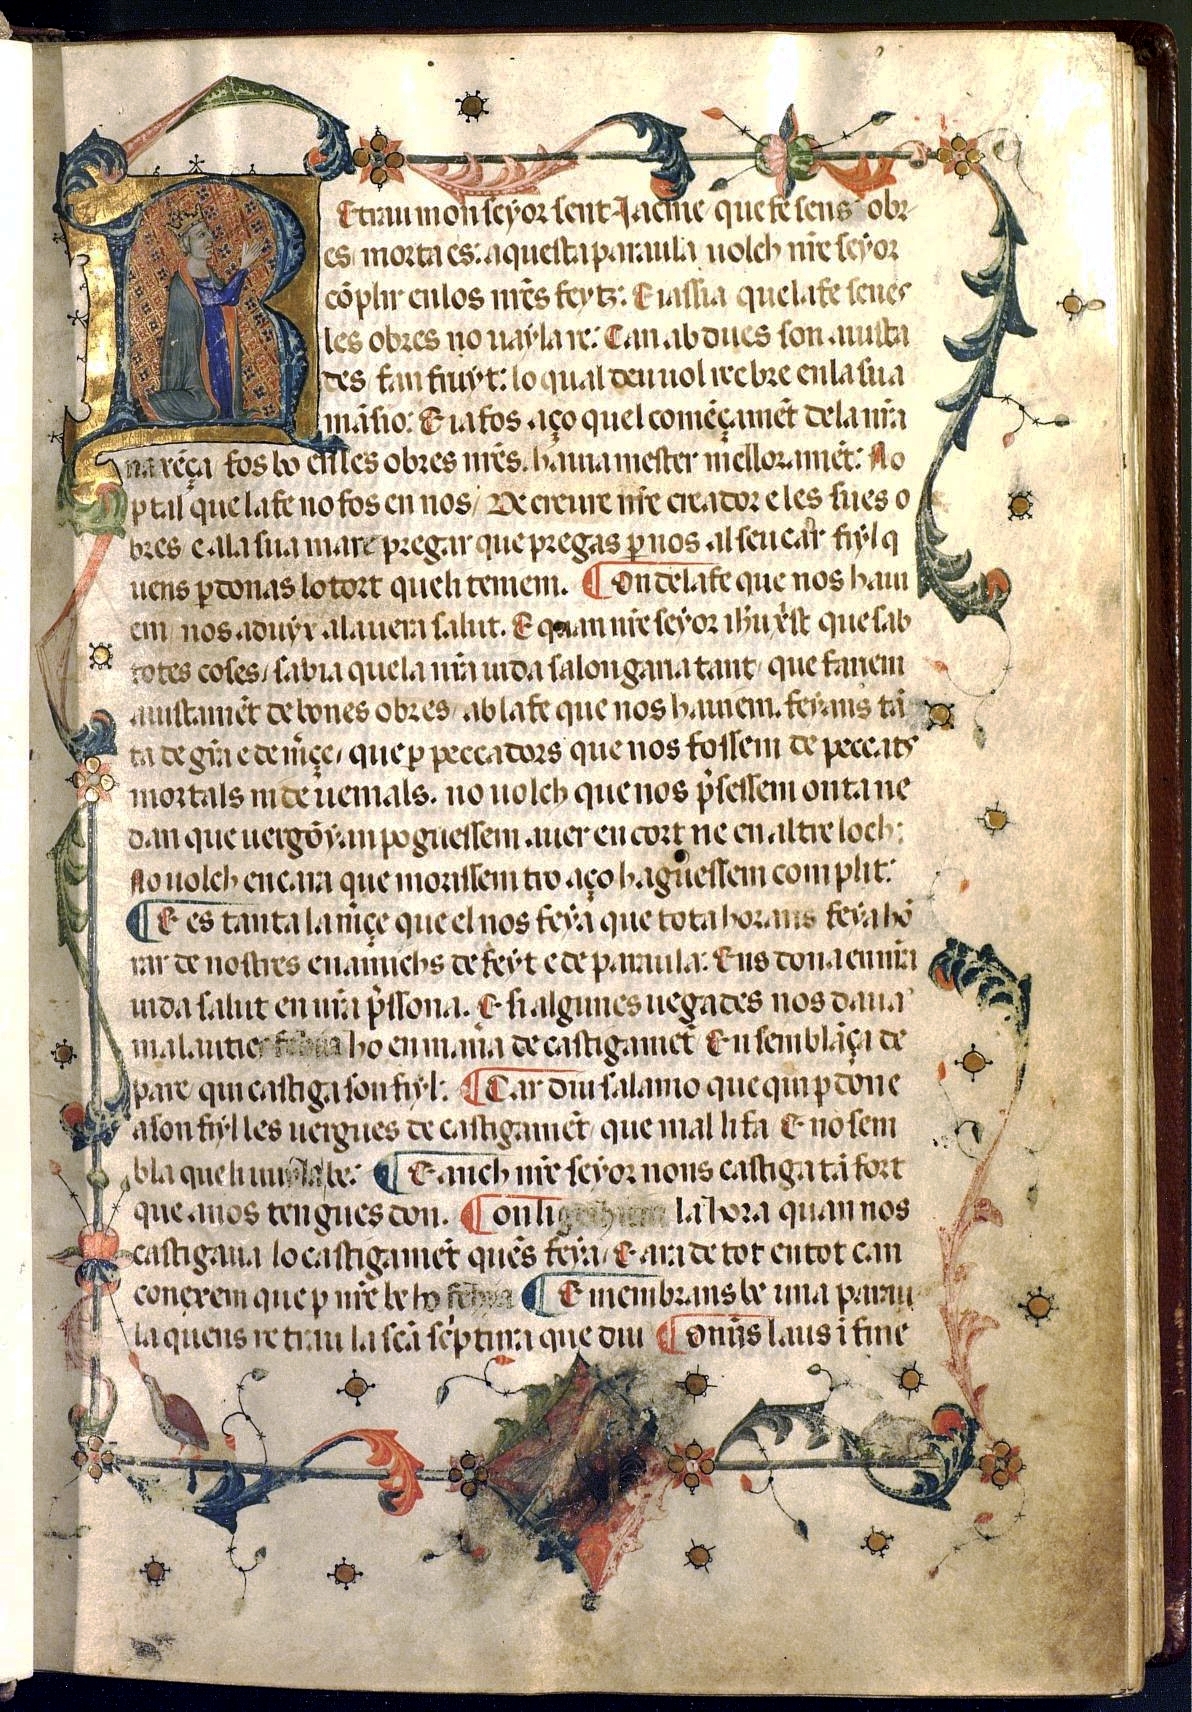 Retrau mon seyor sent Jacme que fe sens obr
es morta es: aquesta paraula uolch nr̃e seyor
cõplir en los nr̃es feytz: E iassia que la fe senes
les obres no uayla re: Can abdues son aiusta
des fan fruyt: lo qual deu uol recebre en la sua
mãsio: E ia fos aço quel comẽçamẽt de la nr̃a
naxẽça fos bo en les obres nr̃es. hauia mester melloramẽt: No
p tal que la fe no fos en nos / De creure nr̃e creador e les sues o
bres e a la sua mare pregar que pregas p nos al seu car fiyl q
uens pdonas lo tort queli teniem. ¶ On de la fe que nos haui
em nos aduyx a la uera salut. E quan nr̃e seyor ihũ xp̃st que sab
totes coses / sabia que la nr̃a uida salongaria tant / que fariem
aiustamẽt de bones obres / ab la fe que nos hauiem. feyans tã
ta de gr̃a e de m̃çe / que p peccadors que nos fossem de peccats
mortals ni de uenials. no uolch que nos p̃sessem onta ne
dan que uergõyan poguessem auer en cort ne en altre loch:
No uolch encara que morissem tro aço haguessem complit:
¶ E es tanta la m̃çe que el nos feya que tota hora ns feya hõ
rar de nostres enamichs de feyt e de paraula. Ens dona en nr̃a
uida salut en nr̃a p̃ssona. E si algunes uegades nos daua
malauties ho en mar̃ia de castigamẽt En semblãça de
pare qui castiga son fiyl: ¶ Car diu salamo que qui pdone
a son fiyl les uergues de castigamẽt / que mal li fa E no sem
bla que li uuyla be: ¶ E anch nr̃e seyor nons castiga tã fort
que a nos tengues don. ¶ On li la hora quan nos
castigaua lo castigamẽt quẽs feya / E ara de tot en tot can
conexem que p nr̃e be ho ¶ E membrans be una parau
la quens retrau la scã sc̃ptura que diu ¶ Oms laus ĩ fine